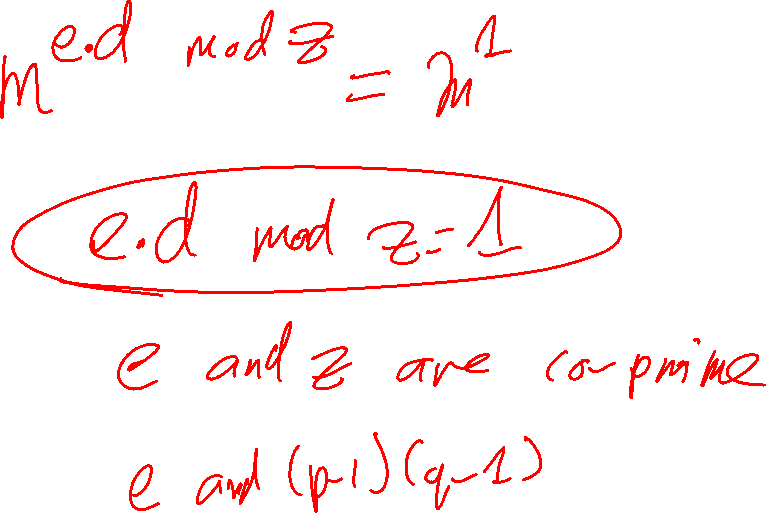 m^{e.d mod z} = m^1
e.d mod z = 1
e and z are co-prime
e and (p-1)(q-1)